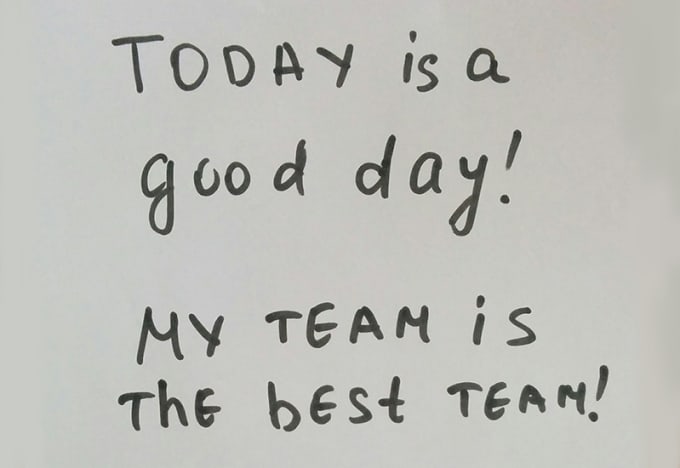 TODAY is a
good day!
MY TEAM is
ThE bESt TEAM!